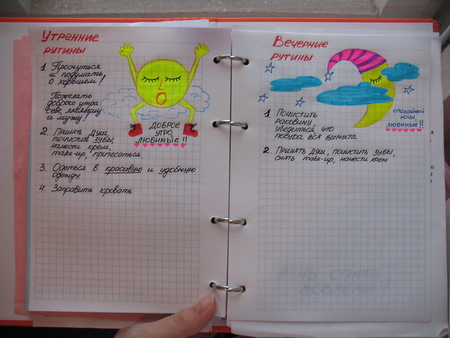 Утренние
рутины
1. Проснуться
и подумать
о хорошем!
Пожелать
доброго утра
себе, малышу
и мужу!
ДОБРОЕ
УТРО
ЛЮБИМЫЕ!!
2. Принять душ,
почистить зубы,
нанести крем,
make-up, причесаться
3. Одеться в красивую и удобную
одежду
4. Заправить кровать
Вечерние
рутины
1. Почистить
раковину,
убедиться, что
посуда вся вымыта
спокойной
ночи
любимые!!
2. Принять душ, почистить зубы,
снять make-up, нанести крем